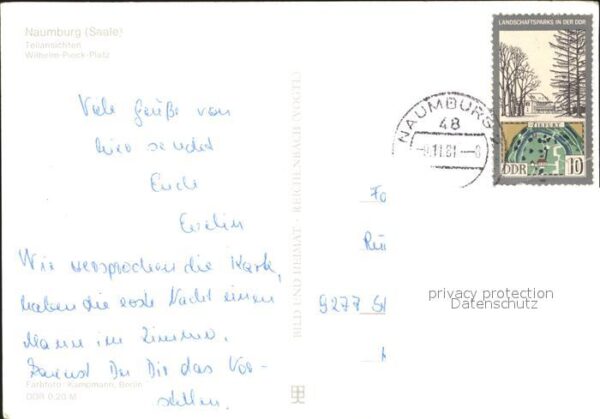 Naumburg (Saale)
Teilansichten
Wilhelm-Pieck-Platz
Viele Grüße von
hier sendet
Euch
Evelin
Wie versprochen die Karte,
haben die erste Nacht einen
Mann im Zimmer.
Kannst Du Dir das Vor-
stellen.
Farbfoto: Kampmann, Berlin
DDR 0,20 M
BILD UND HEIMAT · REICHENBACH
LANDSCHAFTSPARKS IN DER DDR
TIEFURT
DDR
10
NAUMBURG
48
9277
privacy protection
Datenschutz